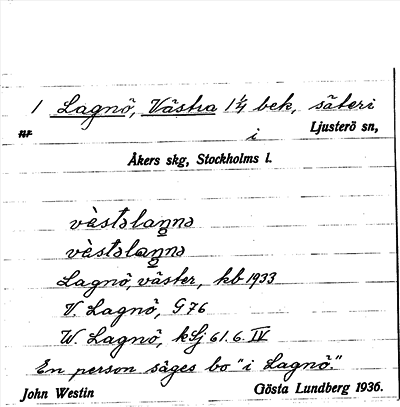 1 Lagnö, Västra 1 1/4 bek, säteri
nr i Ljusterö sn,
Åkers skg, Stockholms l.
västəlaŋnə
västəlaŋnə
Lagnö, väster, kb 1933
V. Lagnö, G 76
W. Lagnö, kSj 61.6. IV
En person säges bo "i Lagnö."
John Westin Gösta Lundberg 1936.